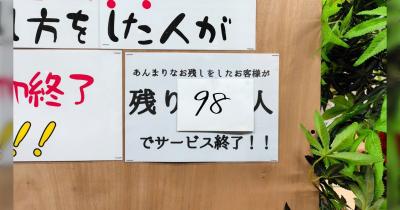 方をした人が
終了
!!
あんまりなお残しをしたお客様が
残り98人
でサービス終了！！